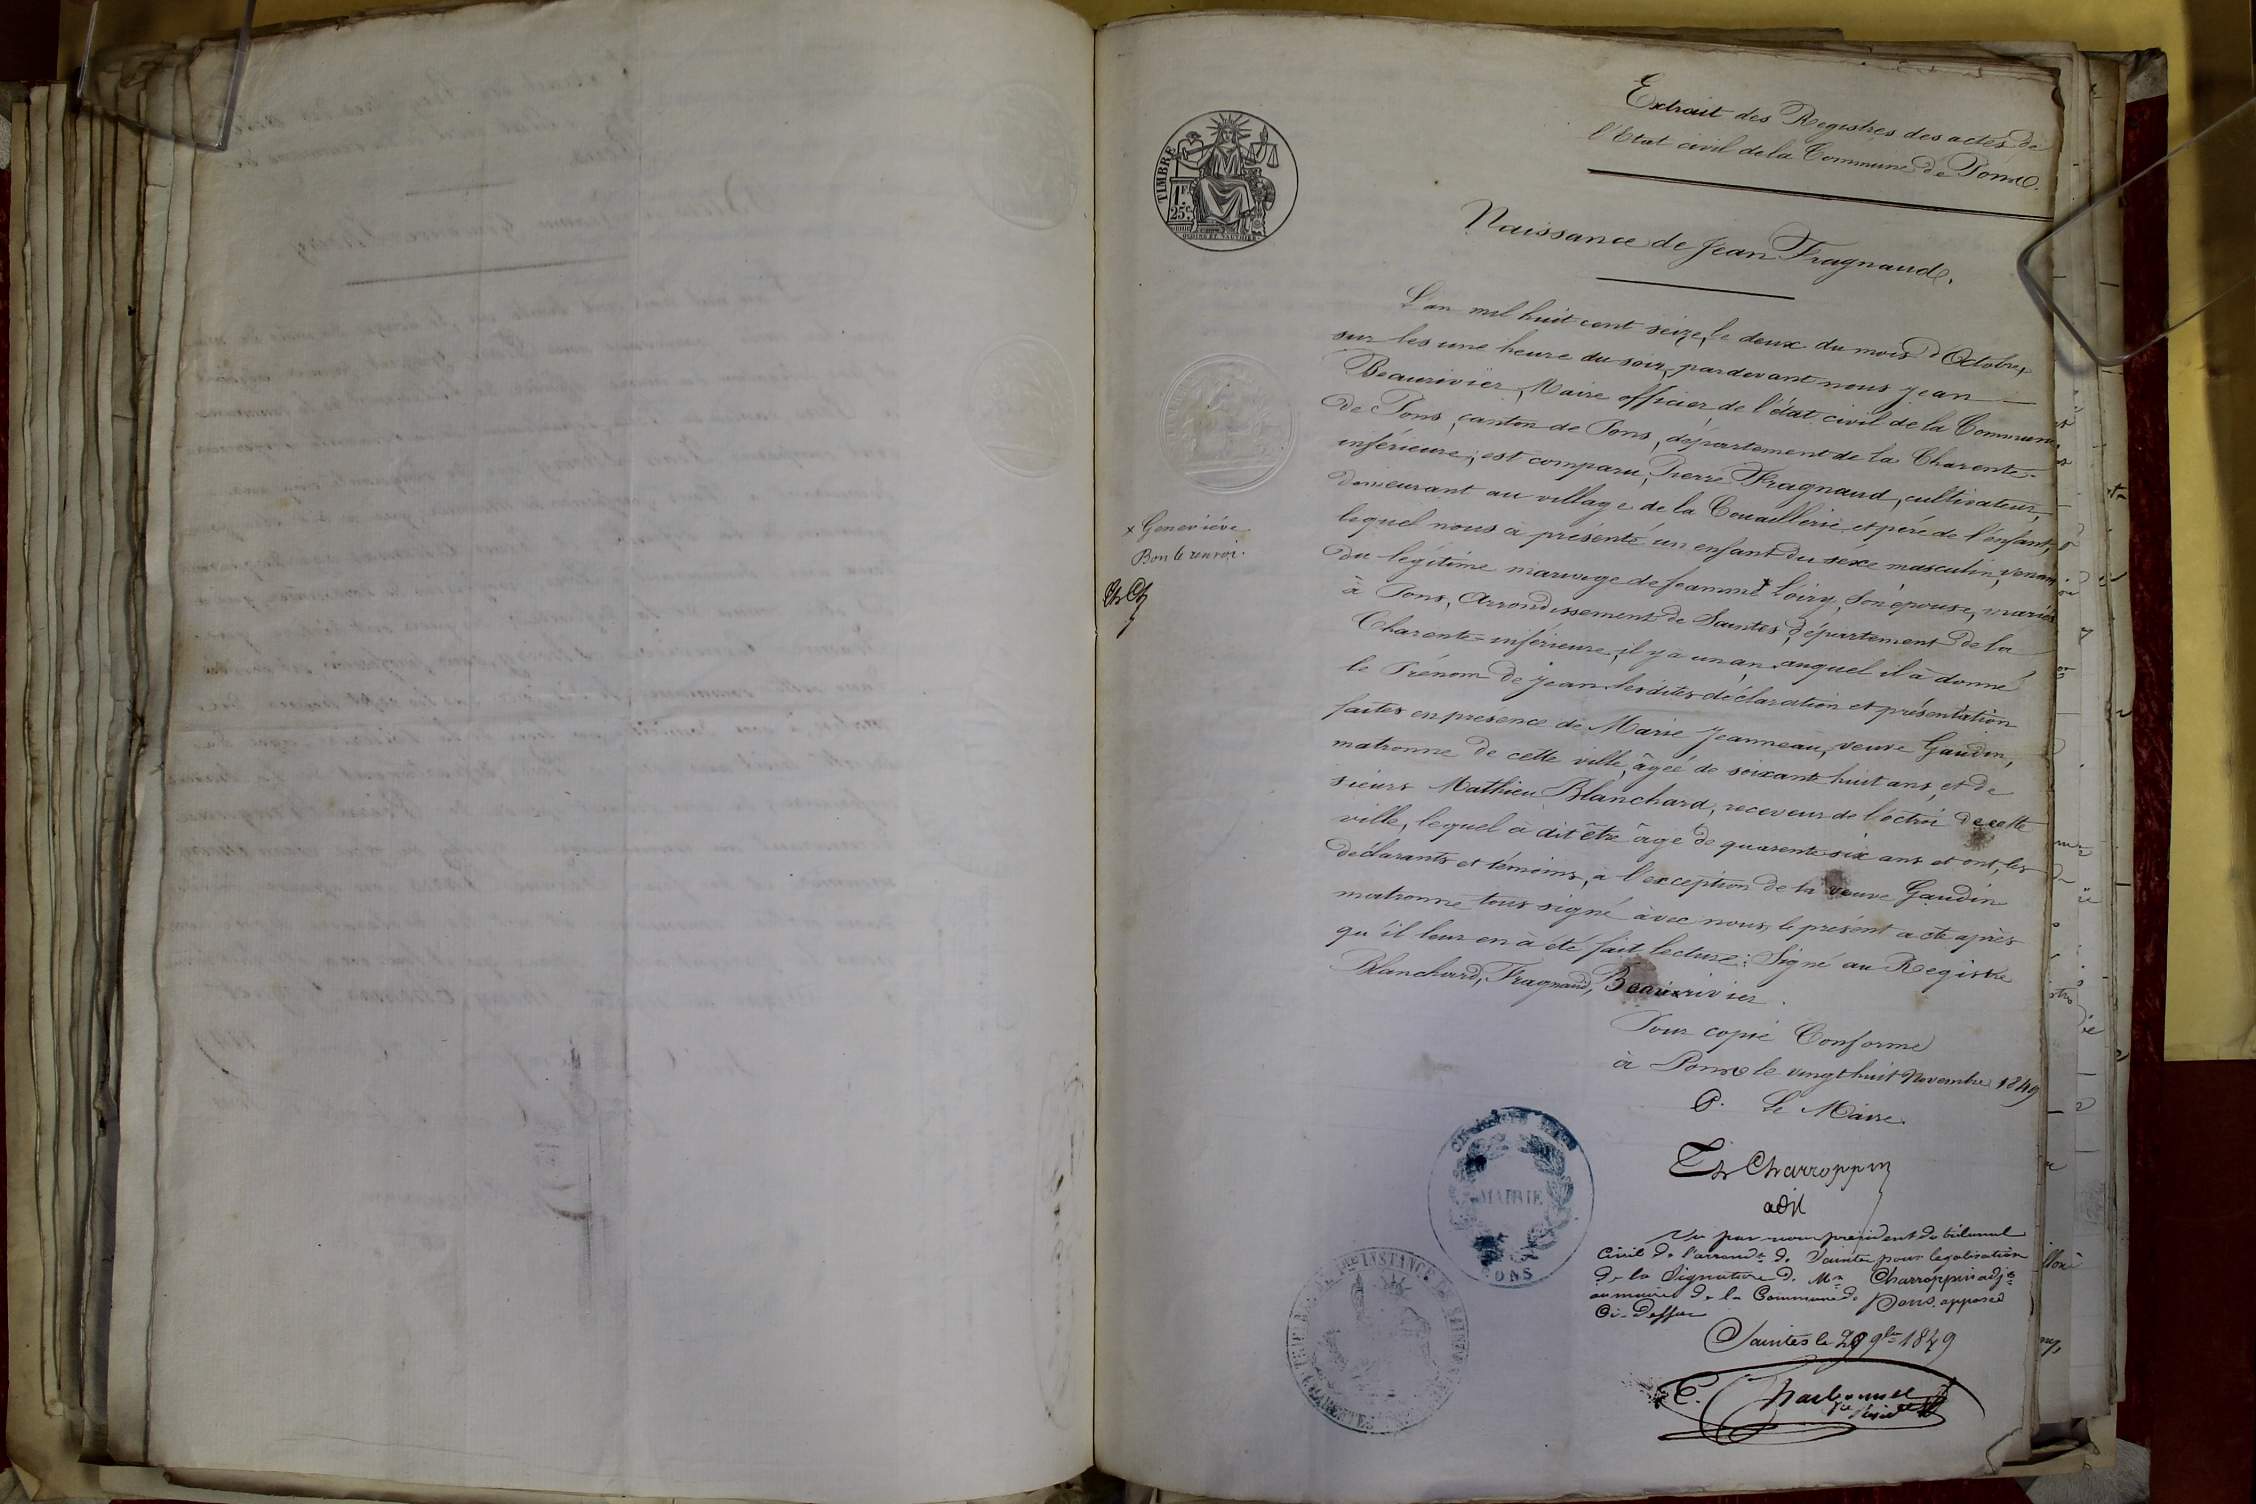 Extrait des Registres des actes de
l'Etat civil de la Commune de Pons.
TIMBRE
1F.
25c.
Naissance de Jean Fragnaud.
L'an mil huit cent seize, le deux du mois d'Octobre,
sur les une heure du soir, pardevant nous Jean
Beaurivier, Maire officier de l'état civil de la Commune,
de Pons, canton de Pons, département de la Charente-
inférieure, est comparu, Pierre Fragnaud, cultivateur,
demeurant au village de la Couaillerie et père de l'enfant,
lequel nous à présenté un enfant du séxe masculin, venant
du légitime mariage de Jeanne x Loiry, son épouse, mariés
à Pons, Arrondissement de Saintes, département de la
Charente-inférieure, il y a un an, auquel il à donné
le Prénom de Jean lesdites déclaration et présentation
faites en présence de Marie Jeanneau, veuve Gaudin,
matronne de cette ville, âgée de soixante huit ans, et de
sieur Mathieu Blanchard, receveur de l'octroi de cette
ville, lequel à dit être âgé de quarente six ans et ont, les
déclarants et témoins, à l'exception de la veuve Gaudin
matronne tous signé avec nous, le présent acte après
qu'il leur en à été fait lecture: Signé au Registre
Blanchard, Fragnaud, Beaurivier.
x Geneviève
Bon le renvoi.
Th Ch
Pour copie Conforme
à Pons le vingt huit Novembre 1849
P. Le Maire.
Th Charroppin
adjt
Vu par nous président du tribunal
Civil de l'arrondt de Saintes pour légalisation
de la Signature de Mr Charroppin adjt
au maire de la Commune de Pons apposée
Ci-Dessus
Saintes le 29 9bre 1849
MAIRIE
PONS
INSTANCE DE